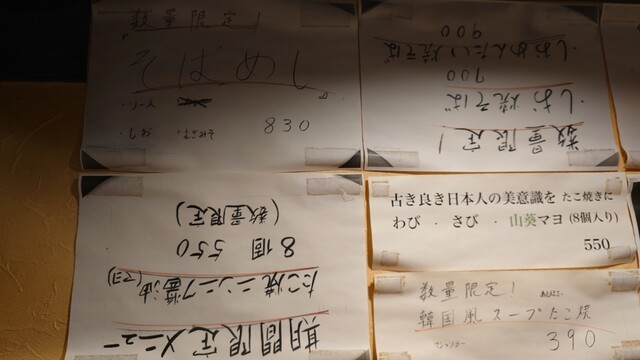 数量限定！
そばめし
・ソース
・しお
830
数量限定！
・しお焼そば
700
・しおめんたい焼そば
900
期間限定メニュー
たこ焼ニンニク醤油(マヨ)
8個 550
(数量限定)
古き良き日本人の美意識を たこ焼きに
わび . さび . 山葵マヨ (8個入り)
550
数量限定！
韓国風スープたこ焼
390